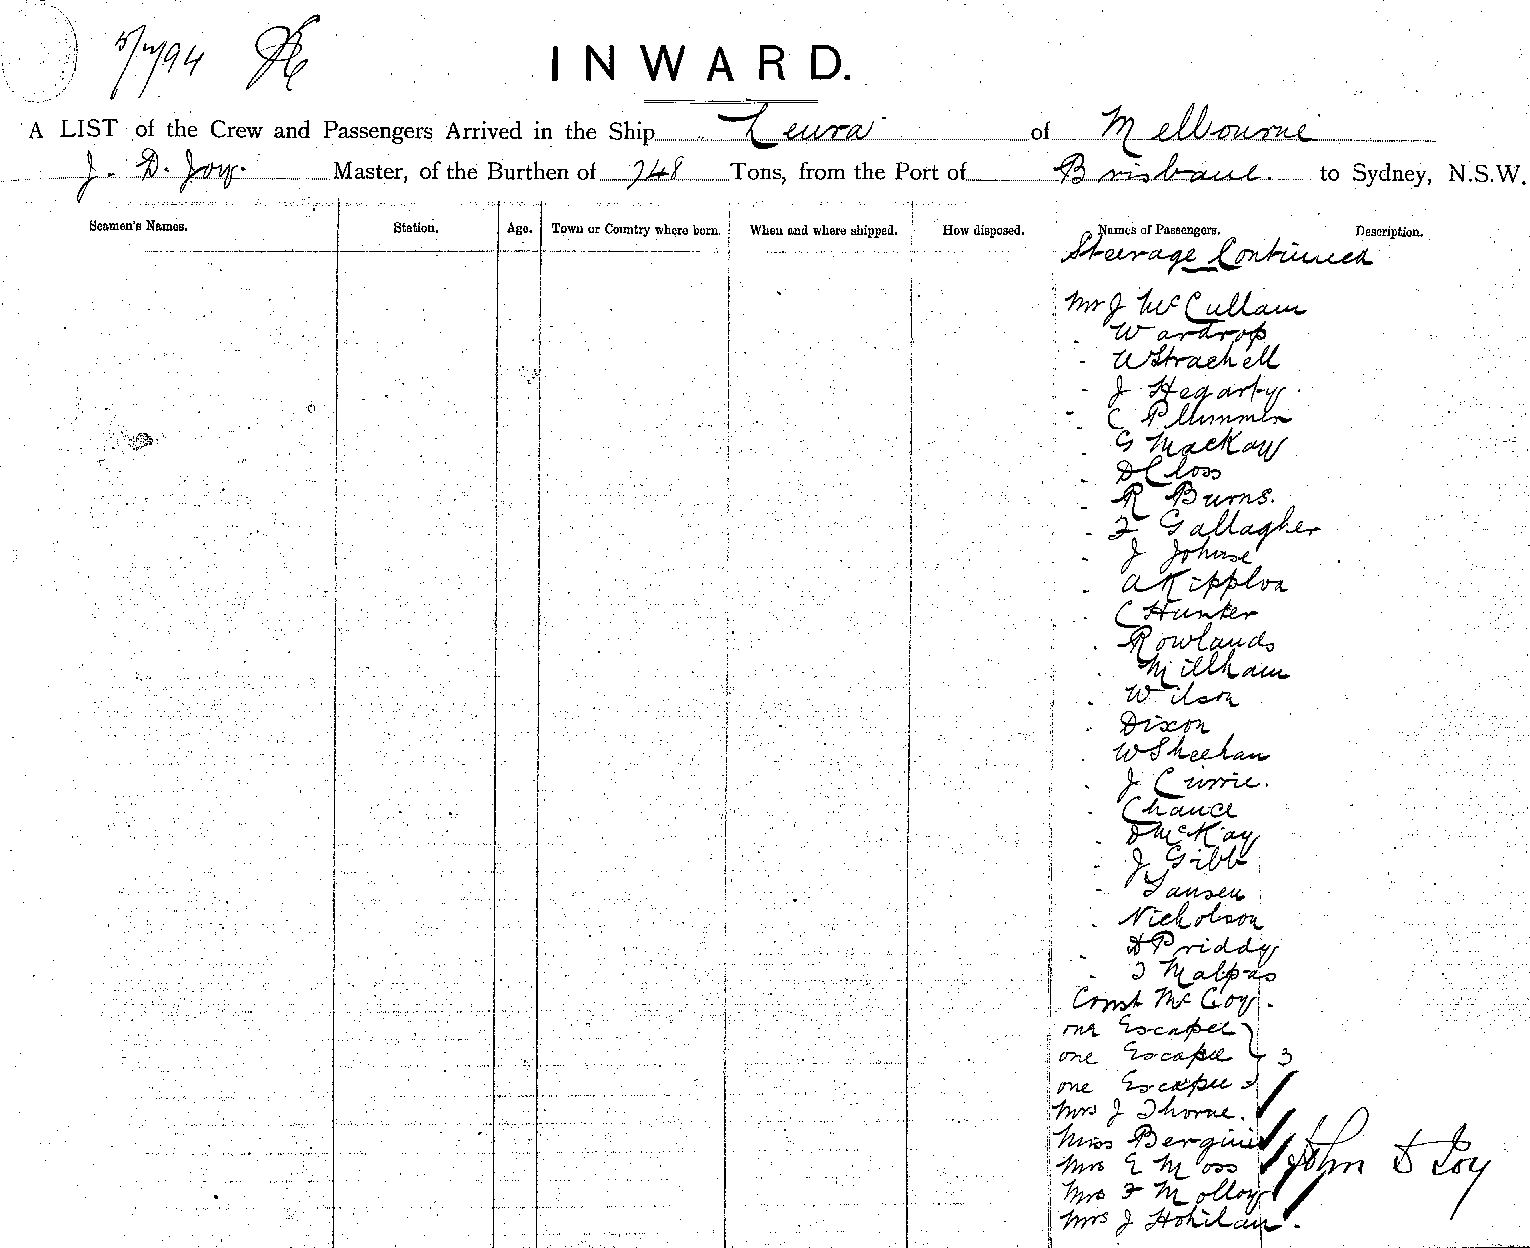 5/7/94
INWARD.
A LIST of the Crew and Passengers Arrived in the Ship Leura of Melbourne
J. D. Joy. Master, of the Burthen of 748 Tons, from the Port of Brisbane. to Sydney, N.S.W.
Seamen's Names. Station. Age. Town or Country where born. When and where shipped. How disposed. Names of Passengers. Description.
Steerage Continued
Mr J McCullam
" Wardrop
" W Strachell
" J Hegarty
" C Plummer
" G Mackay
" D Closs
" R Burns.
" F Gallagher
" J
" A
" C Hunter
" Rowlands
" Millham
" Wilson
" Dixon
" W Sheehan
" J Currie.
" Chance
" D McKay
" J Gibb
" Jansen
" Nicholson
" H Priddy
" T Malpas
Const McCoy.
one Escapee
one Escapee 3
one Escapee
Mrs J Thorne.
Miss
Mrs E Moss John D Joy
Mrs F Molloy
Mrs J